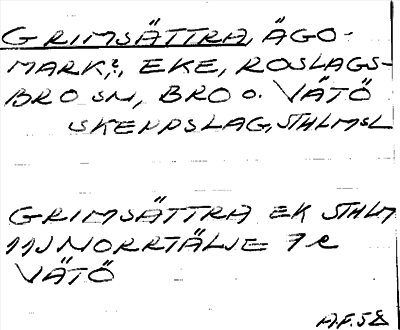 GRIMSÄTTRA, ÄGO-
MARK?, EKE, ROSLAGS-
BRO SN, BRO O. VÄTÖ
SKEPPSLAG, STHLMS L
GRIMSÄTTRA EK STHLM
11J NORRTÄLJE 7 e
VÄTÖ
A.F. 58